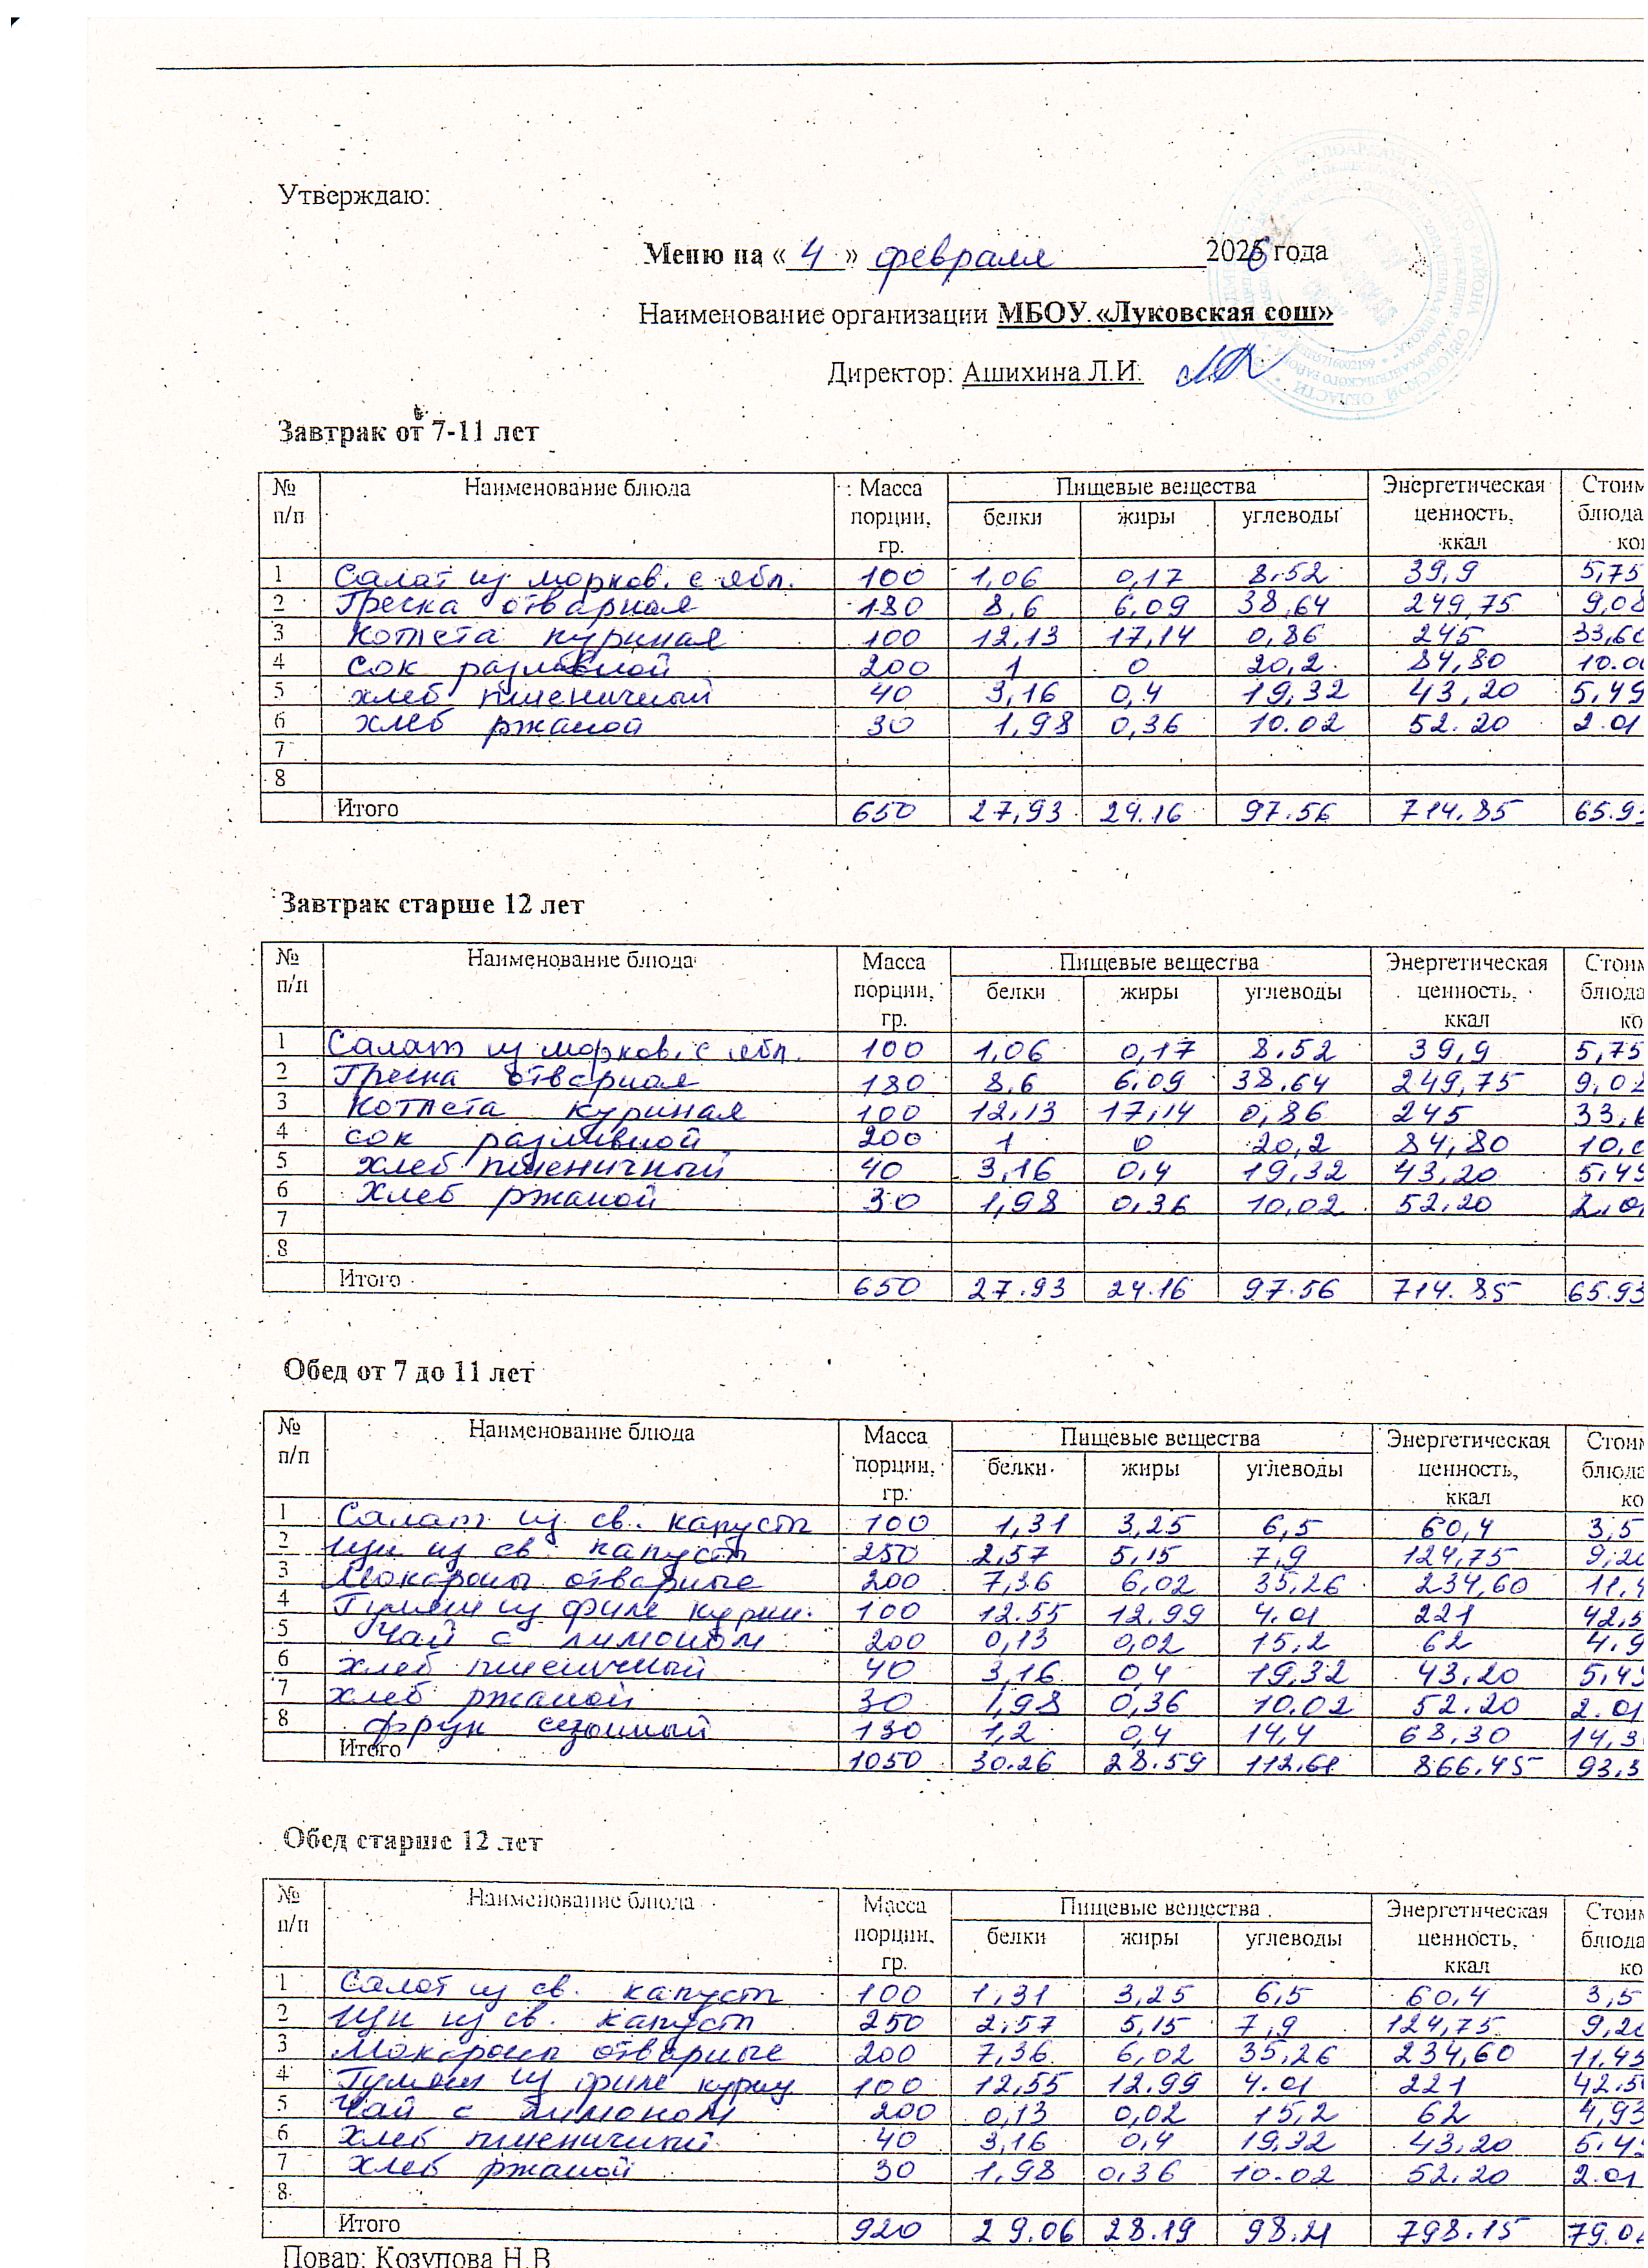 Утверждаю:
Меню на « 4 » февраля 2026 года
Наименование организации МБОУ «Луковская сош»
Директор: Ашихина Л.И.
Завтрак от 7-11 лет
№ п/п Наименование блюда Масса порции, гр. Пищевые вещества Энергетическая ценность, ккал Стоим блюда ко
белки жиры углеводы
1 Салат из морков. с ябл. 100 1,06 0,17 8.52 39,9 5,75
2 Гречка отварная 180 8,6 6,09 38,64 249,75 9,08
3 Котлета куриная 100 12,13 17,14 0,86 245 33,60
4 сок разливной 200 1 0 20,2 84,80 10.00
5 хлеб пшеничный 40 3,16 0,4 19,32 43,20 5,49
6 хлеб ржаной 30 1,98 0,36 10.02 52.20 2.01
7
8
Итого 650 27,93 24.16 97.56 714.85 65.93
Завтрак старше 12 лет
№ п/п Наименование блюда Масса порции, гр. Пищевые вещества Энергетическая ценность, ккал Стоим блюда ко
белки жиры углеводы
1 Салат из морков. с ябл. 100 1,06 0,17 8.52 39,9 5,75
2 Гречка отварная 180 8,6 6.09 38.64 249,75 9,08
3 Котлета куриная 100 12,13 17,14 0,86 245 33,6
4 сок разливной 200 1 0 20,2 84,80 10,0
5 хлеб пшеничный 40 3,16 0,4 19,32 43,20 5,49
6 Хлеб ржаной 30 1,98 0,36 10,02 52,20 2.01
7
8
Итого 650 27.93 24.16 97.56 714.85 65.93
Обед от 7 до 11 лет
№ п/п Наименование блюда Масса порции, гр. Пищевые вещества Энергетическая ценность, ккал Стоим блюда ко
белки жиры углеводы
1 Салат из св. капусты 100 1,31 3,25 6,5 60,4 3,5
2 Щи из св. капусты 250 2,57 5,15 7,9 124,75 9,20
3 Макароны отварные 200 7,36 6,02 35,26 234,60 11,4
4 Гуляш из филе курин. 100 12.55 12.99 4.01 221 42,5
5 Чай с лимоном 200 0,13 0,02 15,2 62 4,9
6 хлеб пшеничный 40 3,16 0,4 19,32 43,20 5,49
7 хлеб ржаной 30 1,98 0,36 10.02 52.20 2.01
8 фрук сезонный 130 1,2 0,4 14,4 68,30 14,3
Итого 1050 30.26 28.59 112.61 866.45 93,3
Обед старше 12 лет
№ п/п Наименование блюда Масса порции, гр. Пищевые вещества Энергетическая ценность, ккал Стоим блюда ко
белки жиры углеводы
1 Салат из св. капусты 100 1,31 3,25 6,5 60,4 3,5
2 Щи из св. капусты 250 2,57 5,15 7,9 124,75 9,20
3 Макароны отварные 200 7,36 6,02 35,26 234,60 11,45
4 Гуляш из филе куриц 100 12,55 12.99 4.01 221 42.50
5 Чай с лимоном 200 0,13 0,02 15,2 62 4,93
6 хлеб пшеничный 40 3,16 0,4 19,32 43,20 5.49
7 хлеб ржаной 30 1,98 0,36 10.02 52.20 2.01
8
Итого 920 29.06 28.19 98.21 798.15 79.0
Повар: Козупова Н.В